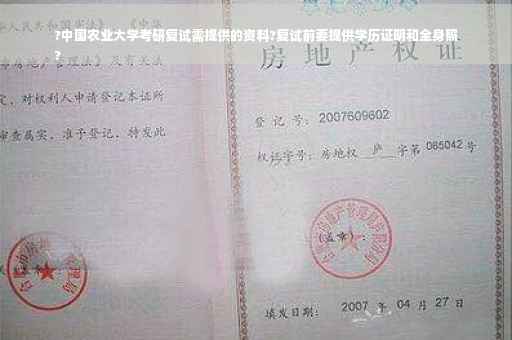 ?中国农业大学考研复试需提供的资料?复试前要提供学历证明和全身照
?
人民共和国
房地产管理法》及有关
定，对权利人申请登记本证所
审查属实，准予登记，特发此
房地产权
登记号：2007609602
权证字号：房地权 庐 字第 085042 号
(盖章)：
填发日期： 2007 年 04 月 27 日